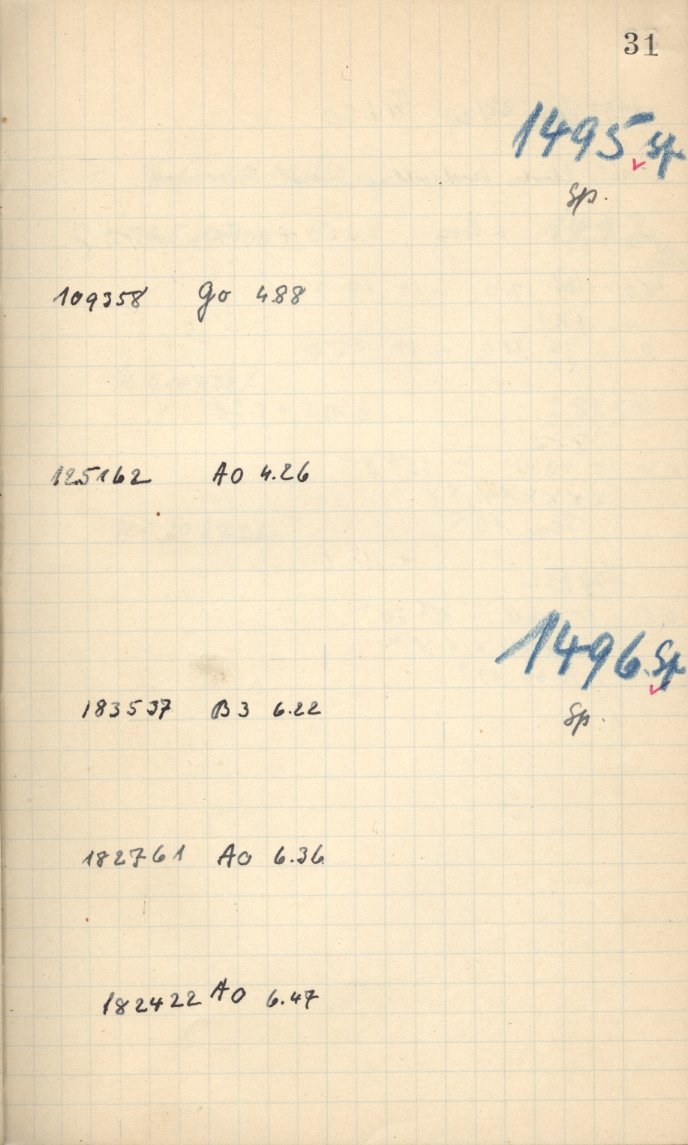 31
1495 Sp
Sp.
109358 go 488
125162 AO 4.26
1496 Sp
Sp.
183537 B3 6.22
182761 AO 6.36
182422 AO 6.47